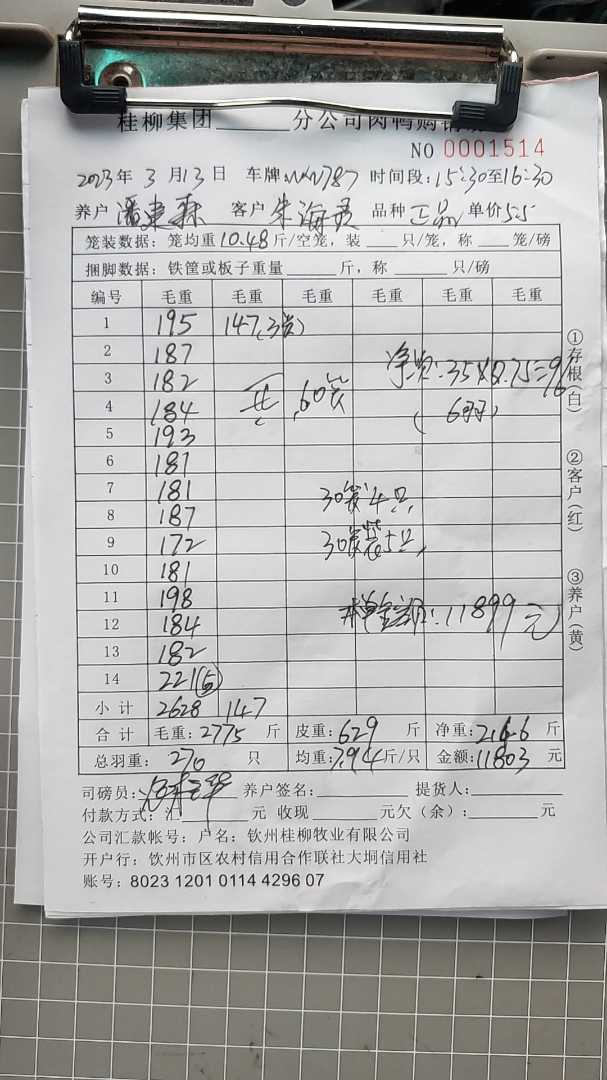 桂柳集团______分公司肉鸭购销
NO 0001514
2023年 3月13日 车牌:NNN787 时间段:15:30至16:30
养户 潘建森 客户 朱海 品种 正品 单价5.5
笼装数据: 笼均重10.48斤/空笼, 装___只/笼, 称___笼/磅
捆脚数据: 铁筐或板子重量______斤, 称______只/磅
编号 毛重 毛重 毛重 毛重 毛重 毛重
1 195 147(3笼)
2 187
3 182 净 :35×2.75=96
4 184 共 60笼 (6羽)
5 193
6 187
7 181 30笼4只
8 187
9 172 30笼装5只
10 181
11 198
12 184 本单金额:11899元
13 182
14 221(5)
小计 2628 147
合计 毛重:2775斤 皮重:629斤 净重:2146斤
总羽重: 270 只 均重:7.94斤/只 金额:11803元
司磅员: 养户签名:________ 提货人:________
付款方式: 汇________元 收现________元欠(余):______元
公司汇款帐号: 户名: 钦州桂柳牧业有限公司
开户行: 钦州市区农村信用合作联社大垌信用社
账号: 8023 1201 0114 4296 07
①存根(白)
②客户(红)
③养户(黄)